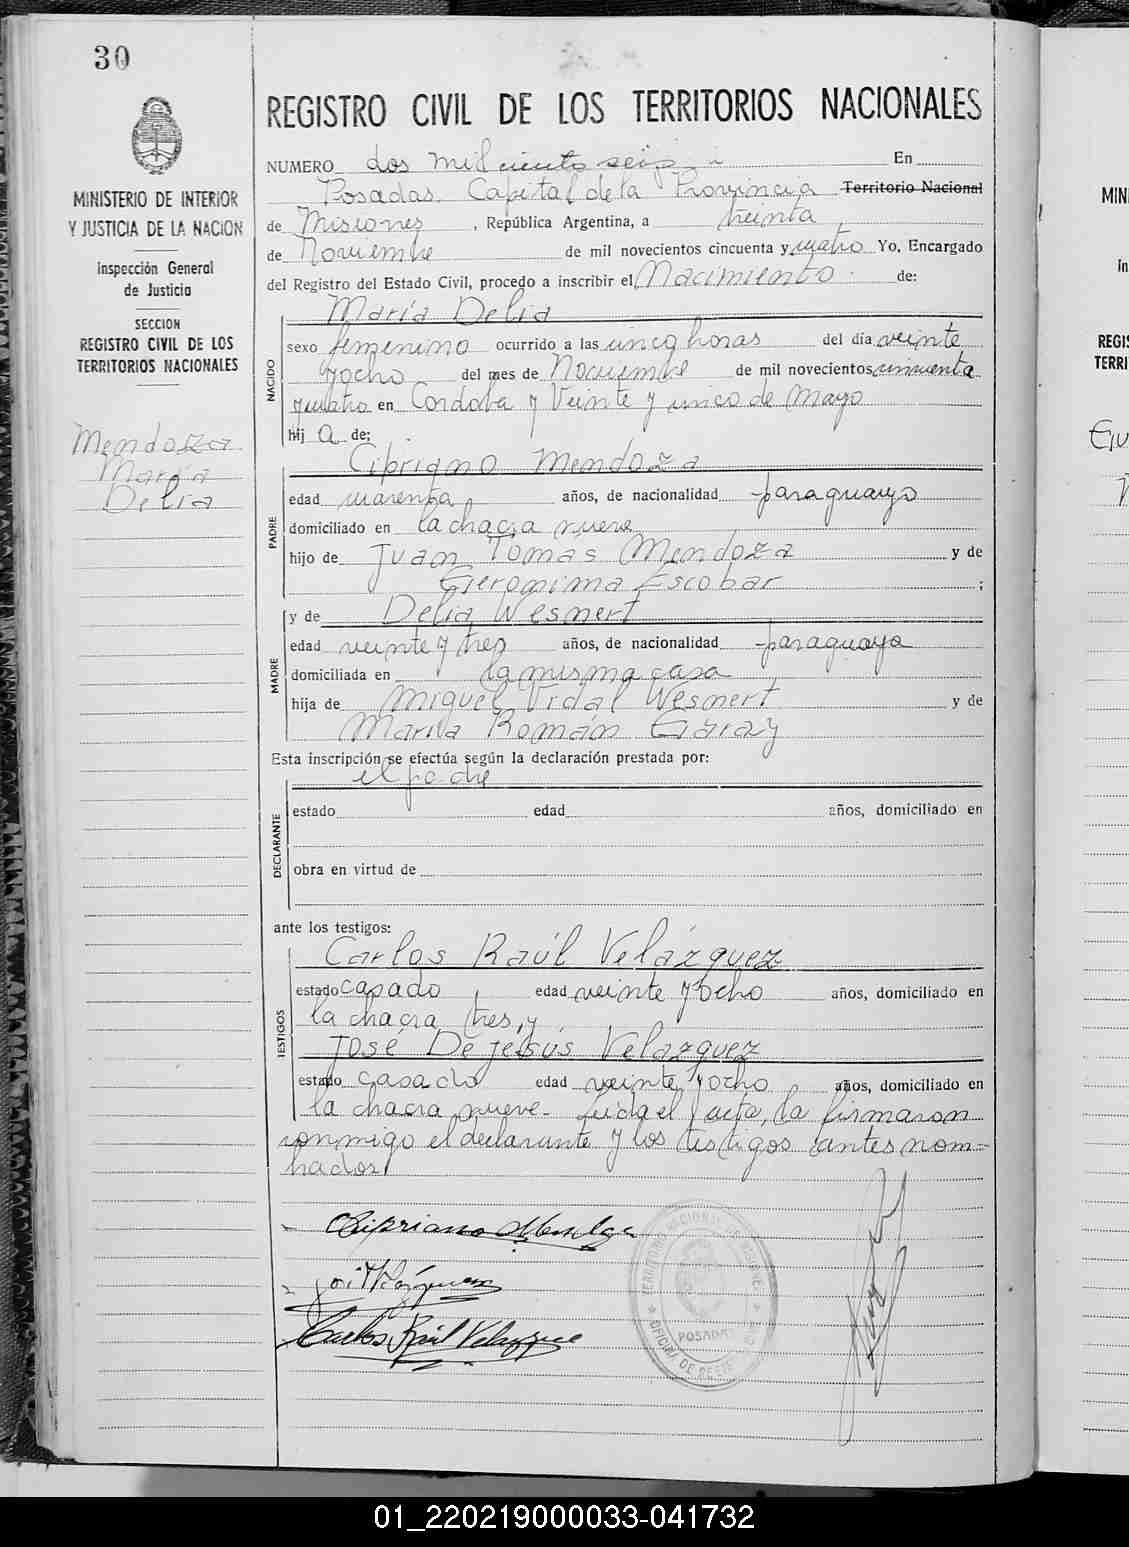 30
REGISTRO CIVIL DE LOS TERRITORIOS NACIONALES
NUMERO dos mil ciento seis En
Posadas, Capital de la Provincia Territorio Nacional
de Misiones, República Argentina, a treinta
de Noviembre de mil novecientos cincuenta y cuatro Yo, Encargado
del Registro del Estado Civil, procedo a inscribir el Nacimiento de:
MINISTERIO DE INTERIOR
Y JUSTICIA DE LA NACION
Inspección General
de Justicia
SECCION
REGISTRO CIVIL DE LOS
TERRITORIOS NACIONALES
Mendoza
María
Delia
NACIDO
María Delia
sexo femenino ocurrido a las cinco horas del día veinte
y ocho del mes de Noviembre de mil novecientos cincuenta
y cuatro en Cordoba y Veinte y cinco de Mayo
hij a de:
PADRE
Cipriano Mendoza
edad cuarenta años, de nacionalidad paraguayo
domiciliado en la chacra nueve
hijo de Juan Tomás Mendoza y de
Gieronima Escobar ;
MADRE
y de Delia Wesnert
edad veinte y tres años, de nacionalidad paraguaya
domiciliada en la misma casa
hija de Miguel Vidal Wesnert y de
María Román Garay
Esta inscripción se efectúa según la declaración prestada por:
el padre
DECLARANTE
estado edad años, domiciliado en
obra en virtud de
ante los testigos:
TESTIGOS
Carlos Raúl Velázquez
estado casado, edad veinte y ocho años, domiciliado en
la chacra tres, y
José De Jesús Velazquez
estado casado edad veinte y ocho, años, domiciliado en
la chacra nueve- Leida el acta, la firmaron
conmigo el declarante y los testigos antes nom=
brados
Cipriano Mendoza
Carlos Raúl Velazquez
POSADAS
MIN
In
REGIS
TERRI
01_220219000033-041732